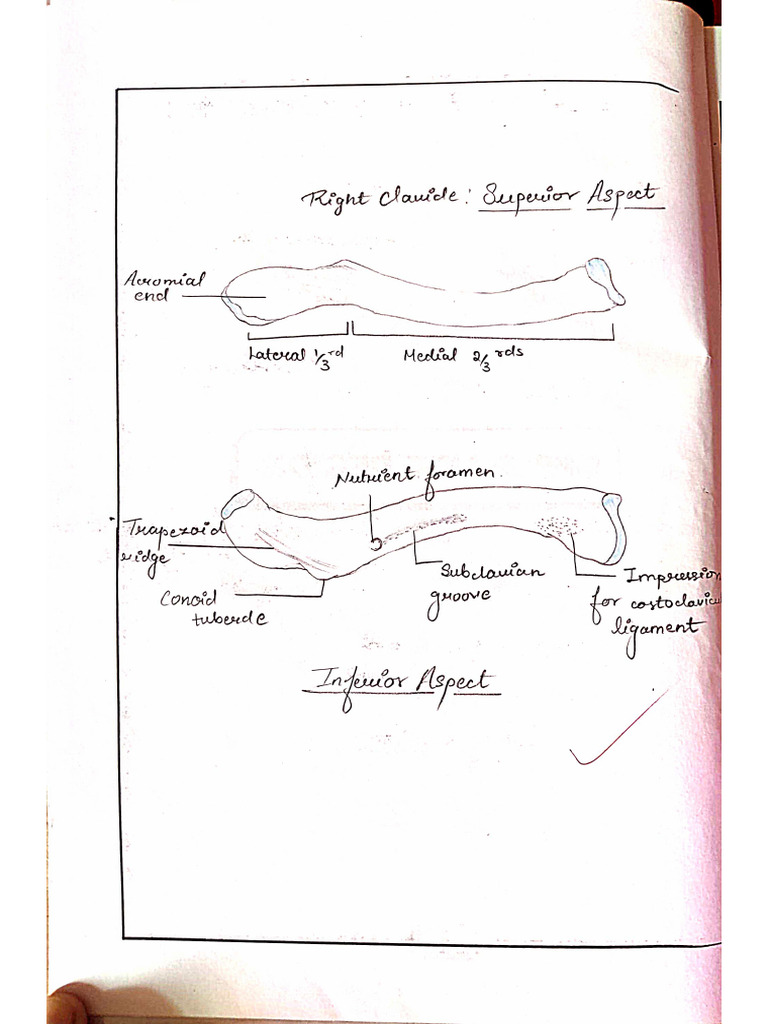 Right Clavicle: Superior Aspect
Acromial
end
Lateral 1/3rd
Medial 2/3rds
Nutrient foramen.
Trapezoid
ridge
Subclavian
groove
Impression
for costoclavicu
ligament
Conoid
tubercle
Inferior Aspect